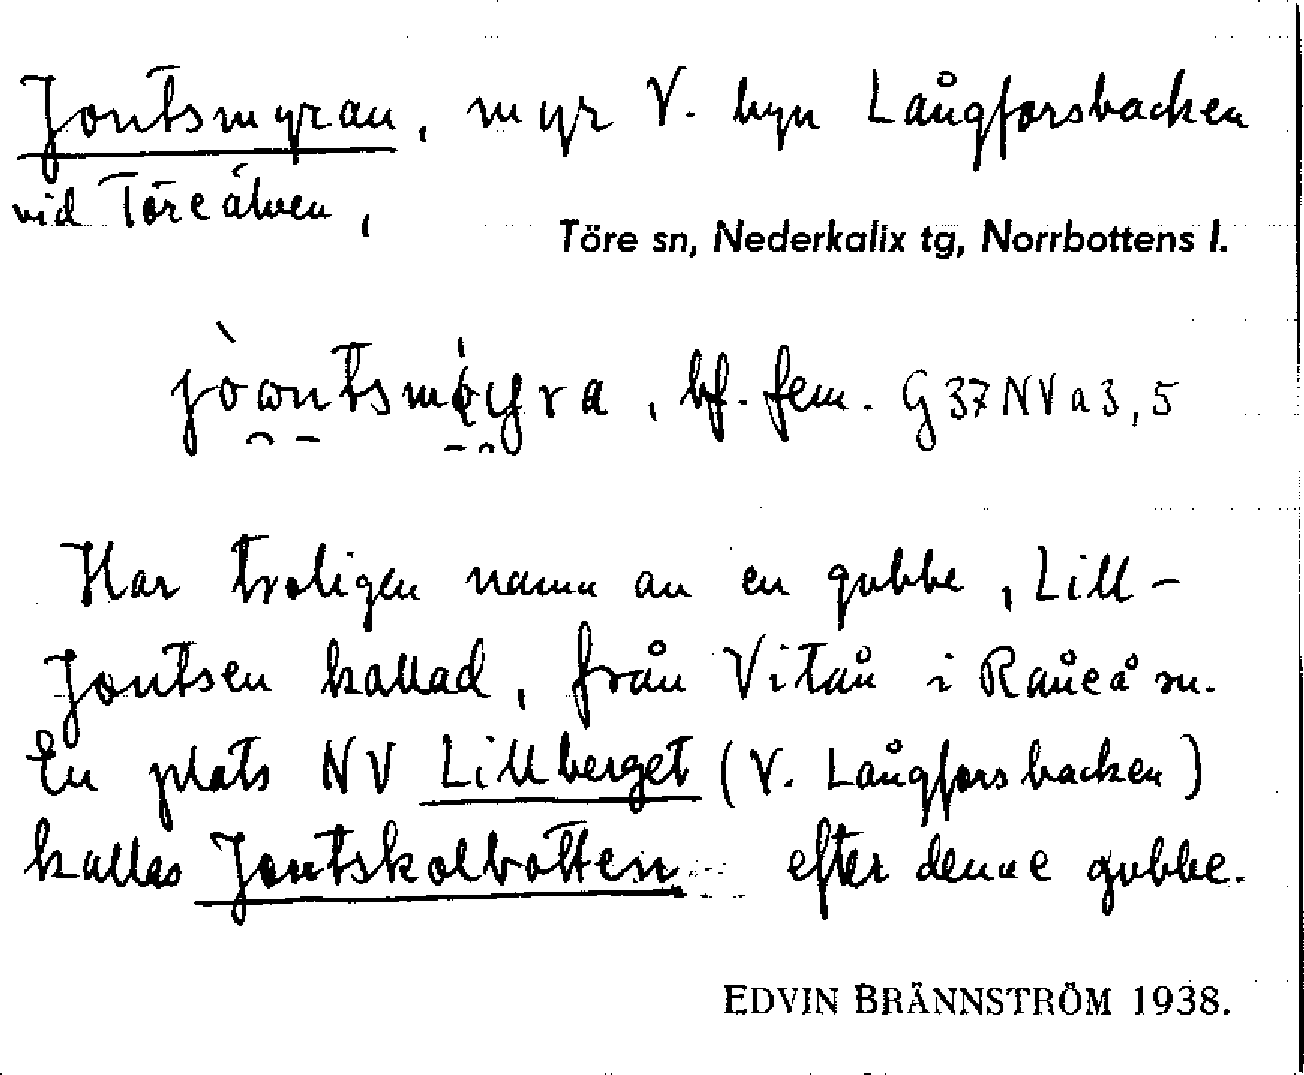 Jontsmyran, myr V. byn Långforsbacken
vid Töreälven,
Töre sn, Nederkalix tg, Norrbottens l.
bf. fem. G37NVa3,5
Har troligen namn av en gubbe, Lill-
Jontsen kallad, från Vitån i Råneå sn.
En plats NV Lillberget (V. Långforsbacken)
kallas Jontskolbotten efter denne gubbe.
EDVIN BRÄNNSTRÖM 1938.